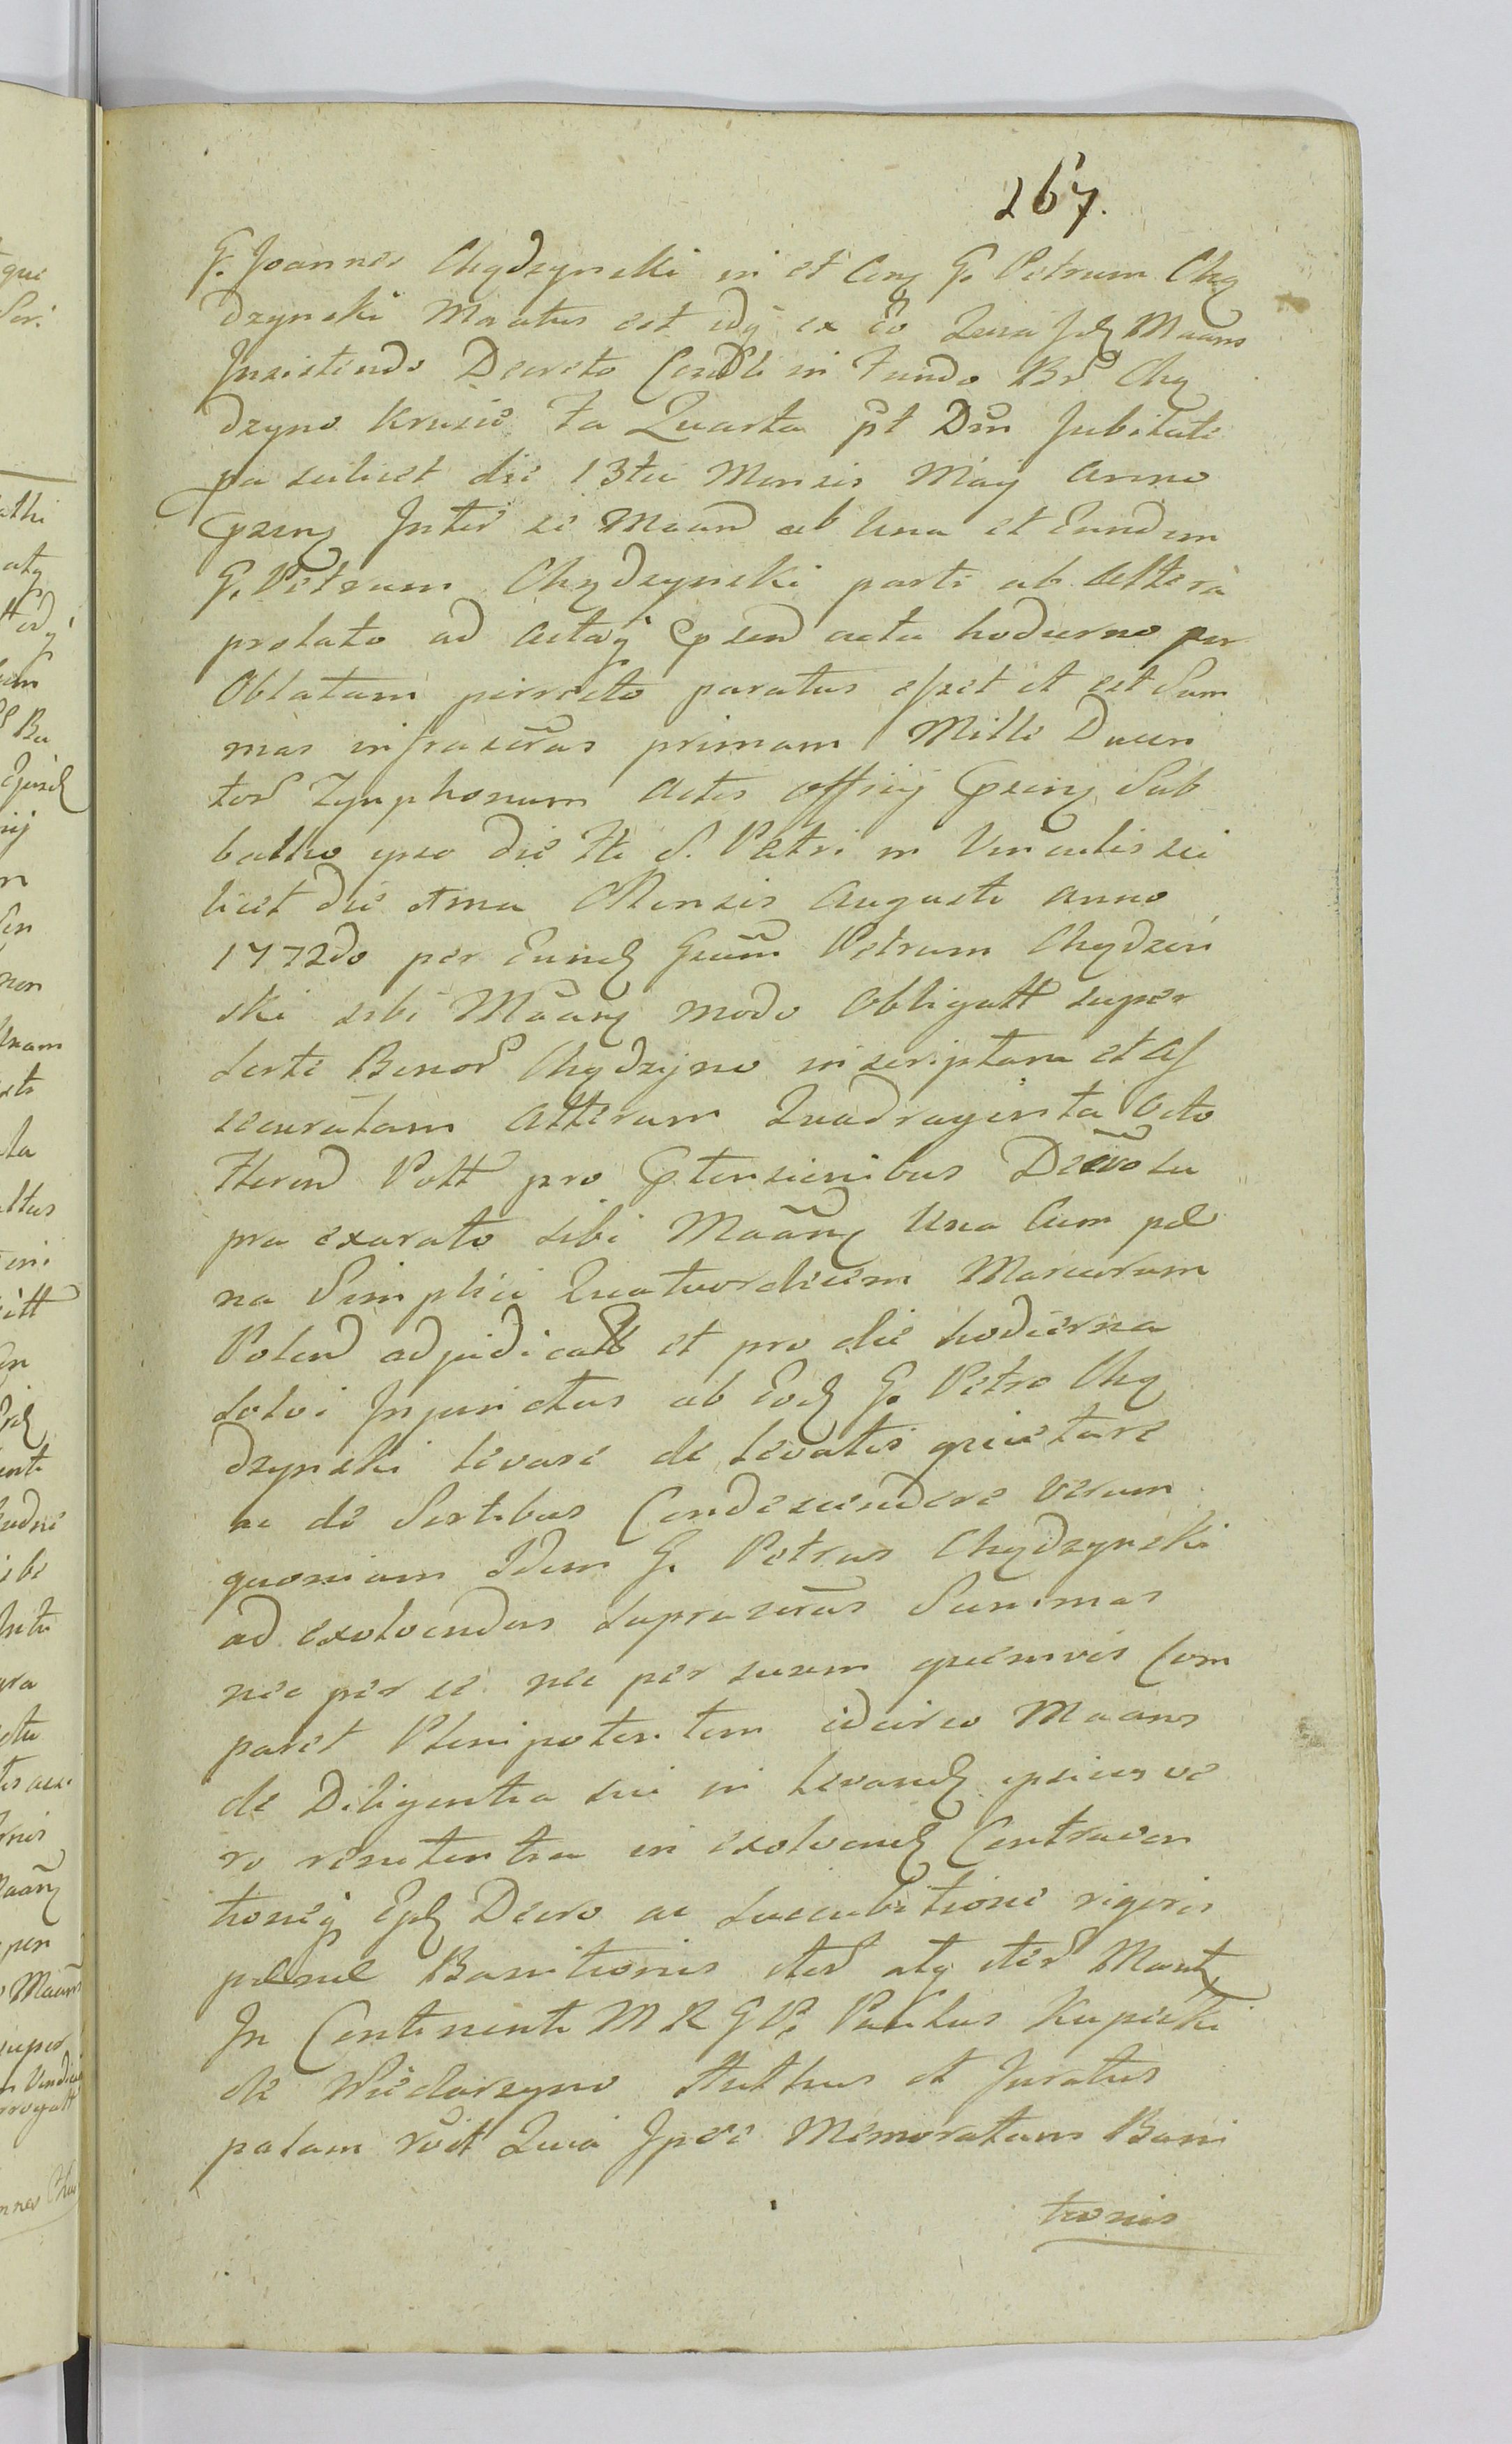 267.
G. Joannes Chądzynski in et Con G. Petrum Chą
dzynski Manatus est idq ex Eo Quia Jd Maans
Insistendo Decreto Condli in Fundo Br Chą
dzyno Krusie Fa Quarta pt Dm Jubilate
pa scilicet die 13tia Mensis Maij anno
pzen Inter se Maan ab Una et Eundem
G. Petrum Chądzynski parte ab altera
prolato ad actaq pzen actu hodierno per
Oblatam porrecto paratus esset et est Sum
mas infrascras primam Mille Ducen
tor Tynphonum actis Officij pzen Sab
batho ipso die Fti S. Petri in Vinculis sci
licet die 1ma Mensis Augusti anno
1772do per Eund Gsum Petrum Chądzin
ski sibi Maan modo Obligatt super
Sorte Bonor Chądzyno inscriptam et as
securatam alteram Quadraginta Octo
Floren Poll pro ptensionibus Decro su
pra exarato sibi Maan Una Cum poe
na Simplici Quatuordecim Marcarum
Polon adjudicatt et pro die hodierna
solvi Injunctas ab Eod G. Petro Chą
dzynski levare de levatis quietare
ac de Sortibus Condescendere Verum
quoniam Idem G. Petrus Chądzynski
ad exolvendas suprascras Summas
nec per se nec per suum quemvis Com
paret Plenipotentem idcirco Maans
de Diligentia sui in levand ipsius ve
ro renitentia in exolvend Contraven
tioneq Epd Decro ac succubitione rigoris
poenae Banitionis iter atq iter Mant
In Continenti M R G P. Paulus Kupiecki
de Wiedarzyno Authus et Juratus
palam roit Quia Ipse Memoratam Bani
tionis